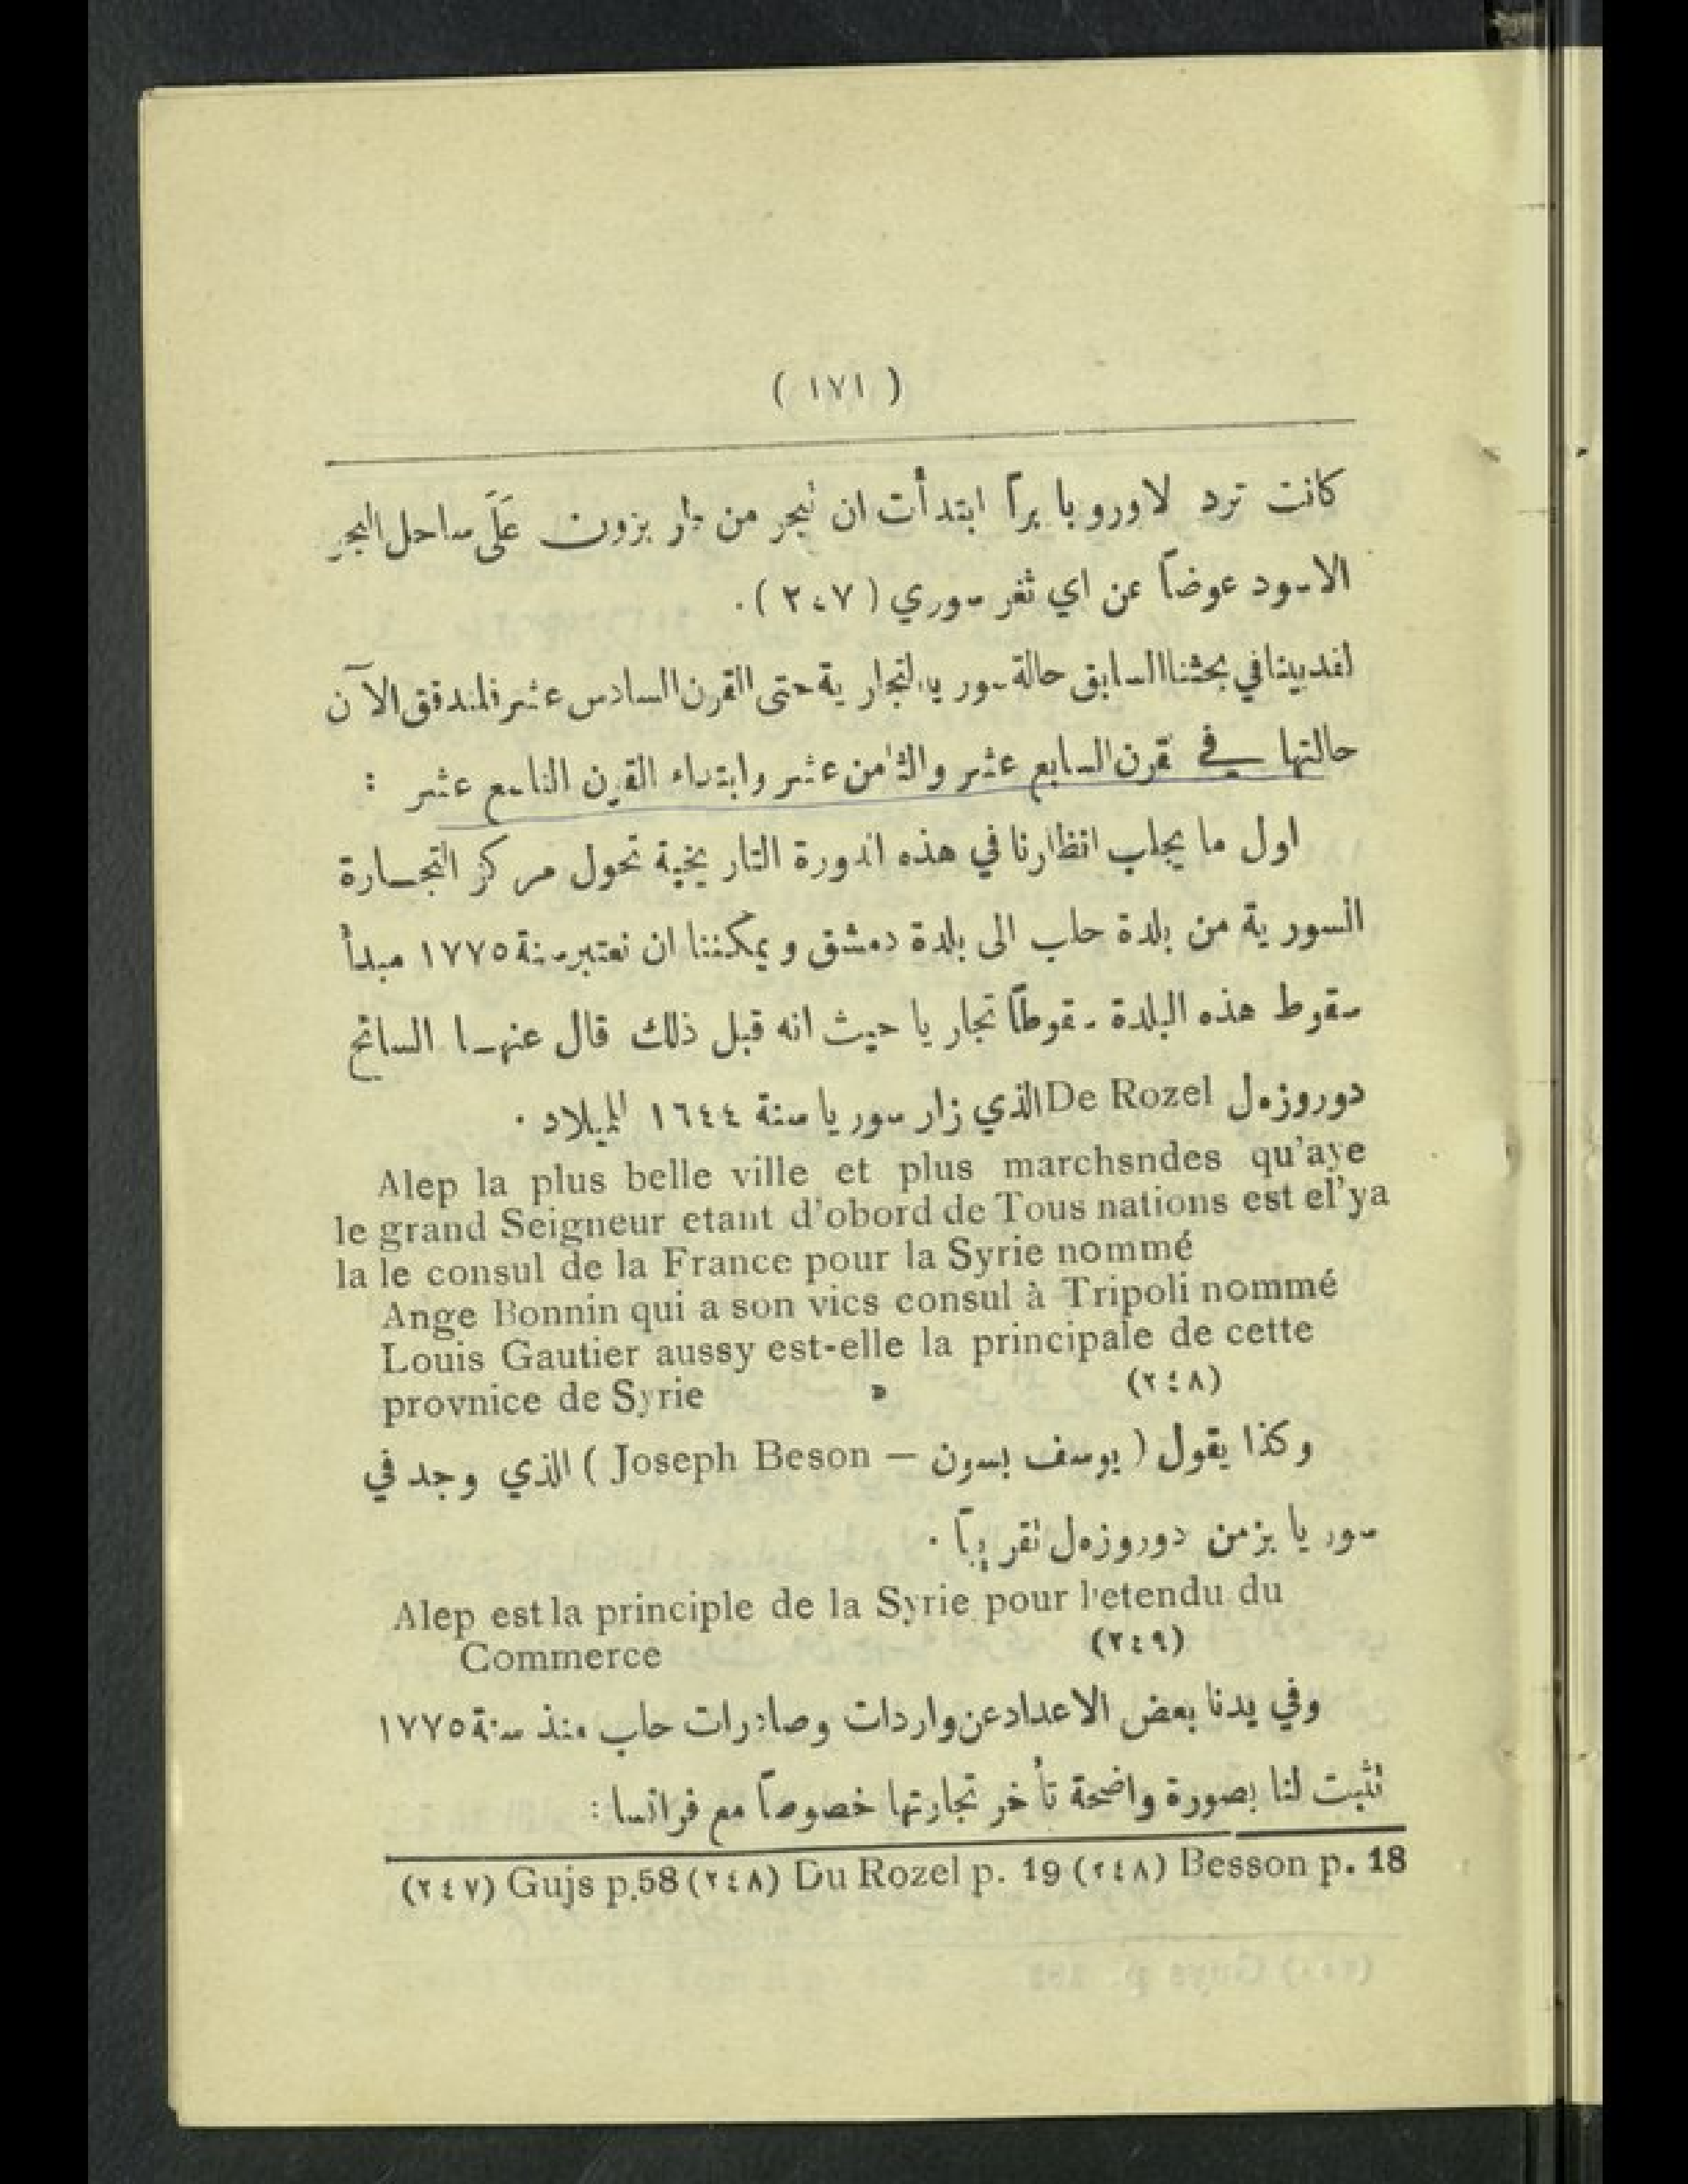 ( ١٧١ )
كانت ترد لاوروبا براً ابتدأت ان تبحر من طرابزون عَلَى ساحل البحر
الاسود عوضاً عن اي ثغر سوري (٢٤٧).
لقد بينا في بحثنا السابق حالة سوريا التجارية حتى القرن السادس عشر فلندقق الآن
حالتها في قرن السابع عشر والثامن عشر وابتداء القرن التاسع عشر :
اول ما يجلب انظارنا في هذه الدورة التاريخية تحول مركز التجـارة
السورية من بلدة حلب الى بلدة دمشق ويمكننا ان نعتبر سنة ١٧٧٥ مبدأ
سقوط هذه البلدة سقوطاً تجاريا حيث انه قبل ذلك قال عنهـا السائح
دوروزهل De Rozel الذي زار سوريا سنة ١٦٤٤ للميلاد .
Alep la plus belle ville et plus marchsndes qu'aye
le grand Seigneur etant d'obord de Tous nations est el'ya
la le consul de la France pour la Syrie nommé
Ange Bonnin qui a son vics consul à Tripoli nommé
Louis Gautier aussy est-elle la principale de cette
provnice de Syrie (٢٤٨)
وكذا يقول ( يوسف بسون — Joseph Beson ) الذي وجد في
سوريا بزمن دوروزهل تقريباً .
Alep est la principle de la Syrie pour l'etendu du
Commerce (٢٤٩)
وفي يدنا بعض الاعداد عن واردات وصادرات حلب منذ سنة ١٧٧٥
تثبت لنا بصورة واضحة تأخر تجارتها خصوصاً مع فرانسا :
(٢٤٧) Gujs p.58 (٢٤٨) Du Rozel p. 19 (٢٤٨) Besson p. 18